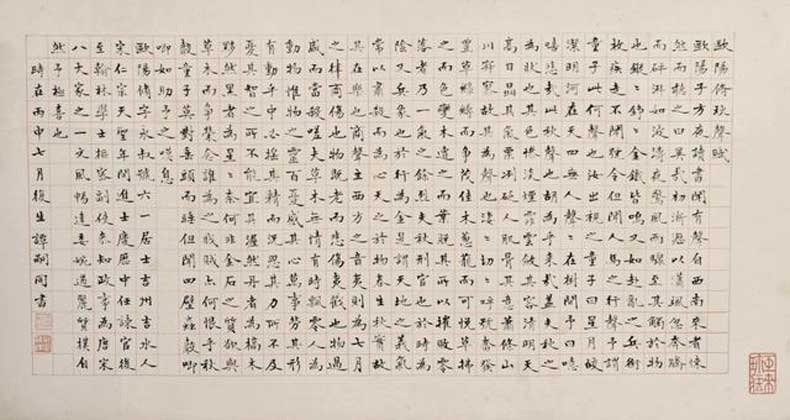 歐陽修秋聲賦
歐陽子方夜讀書聞有聲自西南來者悚
然而聽之曰異哉初淅瀝以瀟颯忽奔騰
而砰湃如波濤夜驚風雨驟至其觸於物
也鏦〻錚〻金鐵皆鳴又如赴敵之兵銜
枚疾走不聞號令但聞人馬之行聲予謂
童子此何聲也汝出視之童子曰星月皎
潔明河在天四無人聲聲在樹間予曰噫
嘻悲哉此秋聲也胡為乎來哉蓋夫秋之
為狀也其色慘淡煙霏雲斂其容清明天
高日晶其氣慄冽砭人肌骨其意蕭條山
川寂寥故其為聲也淒〻切〻呼號奮發
豐草綠縟而爭茂佳木蔥蘢而可悅草拂
之而色變木遭之而葉脫其所以摧敗零
落者乃一氣之餘烈夫秋刑官也於時為
陰又兵象也於行為金是謂天地之義氣
常以肅殺而為心天之於物春生秋實故
其在樂也商聲主西方之音夷則為七月
之律商傷也物既老而悲傷夷戮也物過
盛而當殺嗟夫草木無情有時飄零人為
動物惟物之靈百憂感其心萬事勞其形
有動乎中必搖其精而況思其力所不及
憂其智之所不能宜其渥然丹者為槁木
黟然黑者為星〻奈何非金石之質欲與
草木而爭榮念誰為之戕賊亦何恨乎秋
聲童子莫對垂頭而睡但聞四壁蟲聲唧
唧如助予之嘆息
歐陽修字永叔號六一居士吉州吉水人
宋仁宗天聖年間進士慶歷中任諫官後
至翰林學士樞密副使參知政事為唐宋
八大家之一文風暢達委婉遒麗質樸自
然予極喜也
時在丙申七月復生譚嗣同書